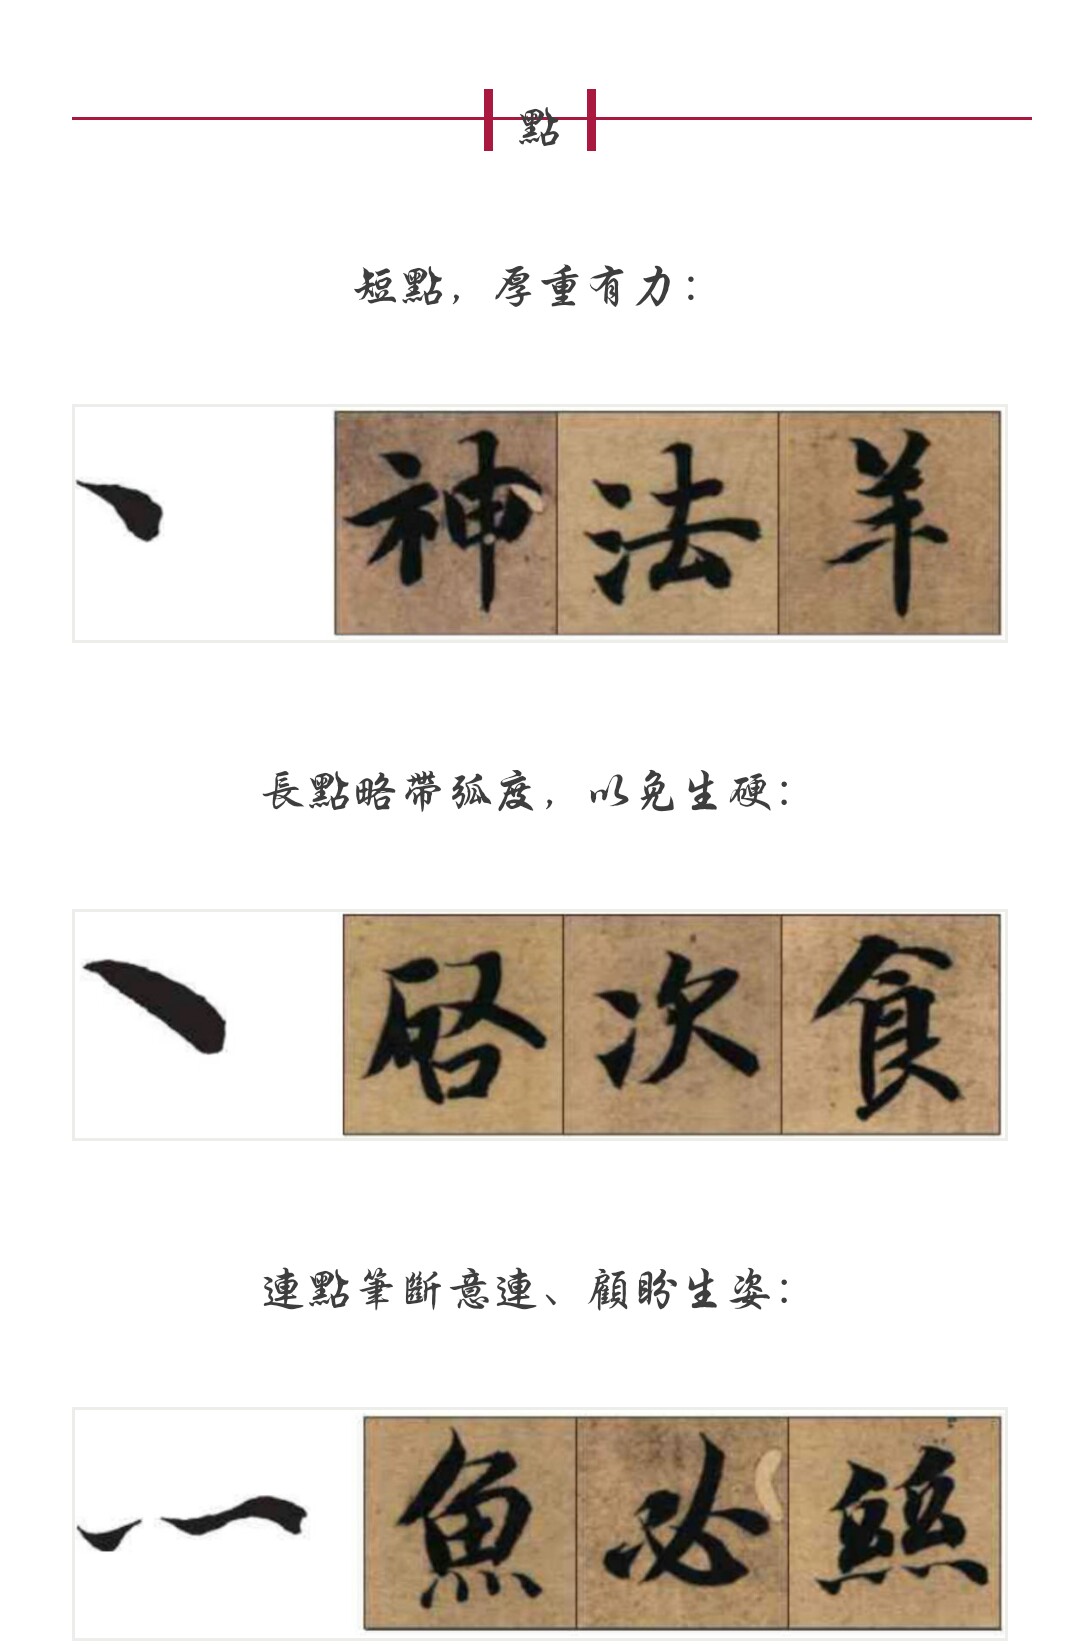 點
短點，厚重有力：
神 法 羊
長點略帶弧度，以免生硬：
啓 次 食
連點筆斷意連、顧盼生姿：
魚 必